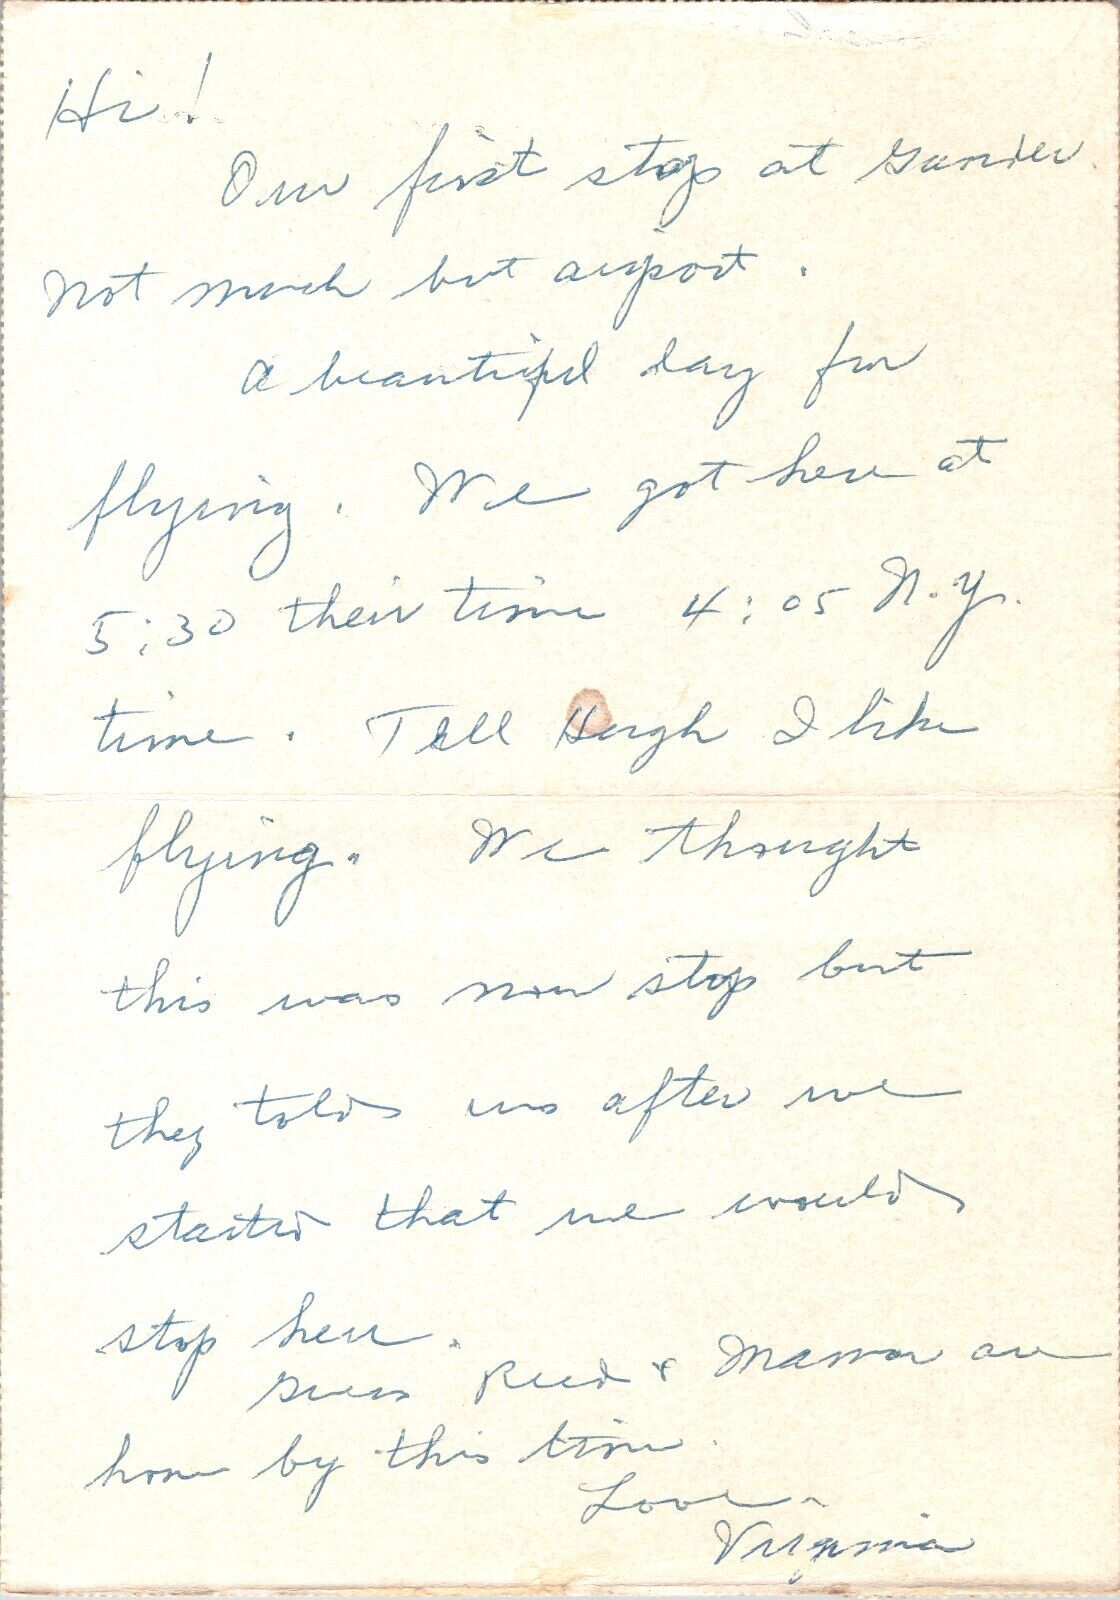 Hi!
Our first stop at Gander.
Not much but airport.
A beautiful day for
flying. We got here at
5:30 their time 4:05 N.Y.
time. Tell Hugh I like
flying. We thought
this was non stop but
they told us after we
started that we would
stop here.
Guess Reed & are
home by this time.
Love,
Virginia